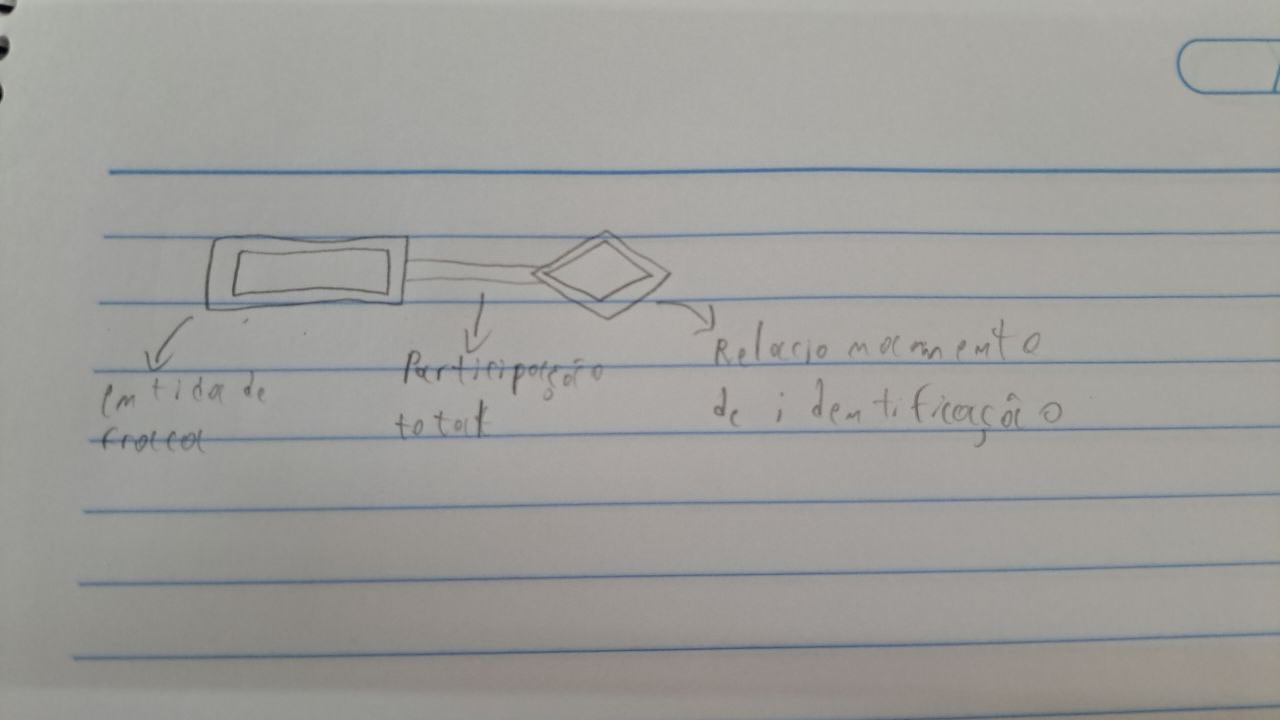 entidade
fraca
Participação
total
Relacionamento
de identificação